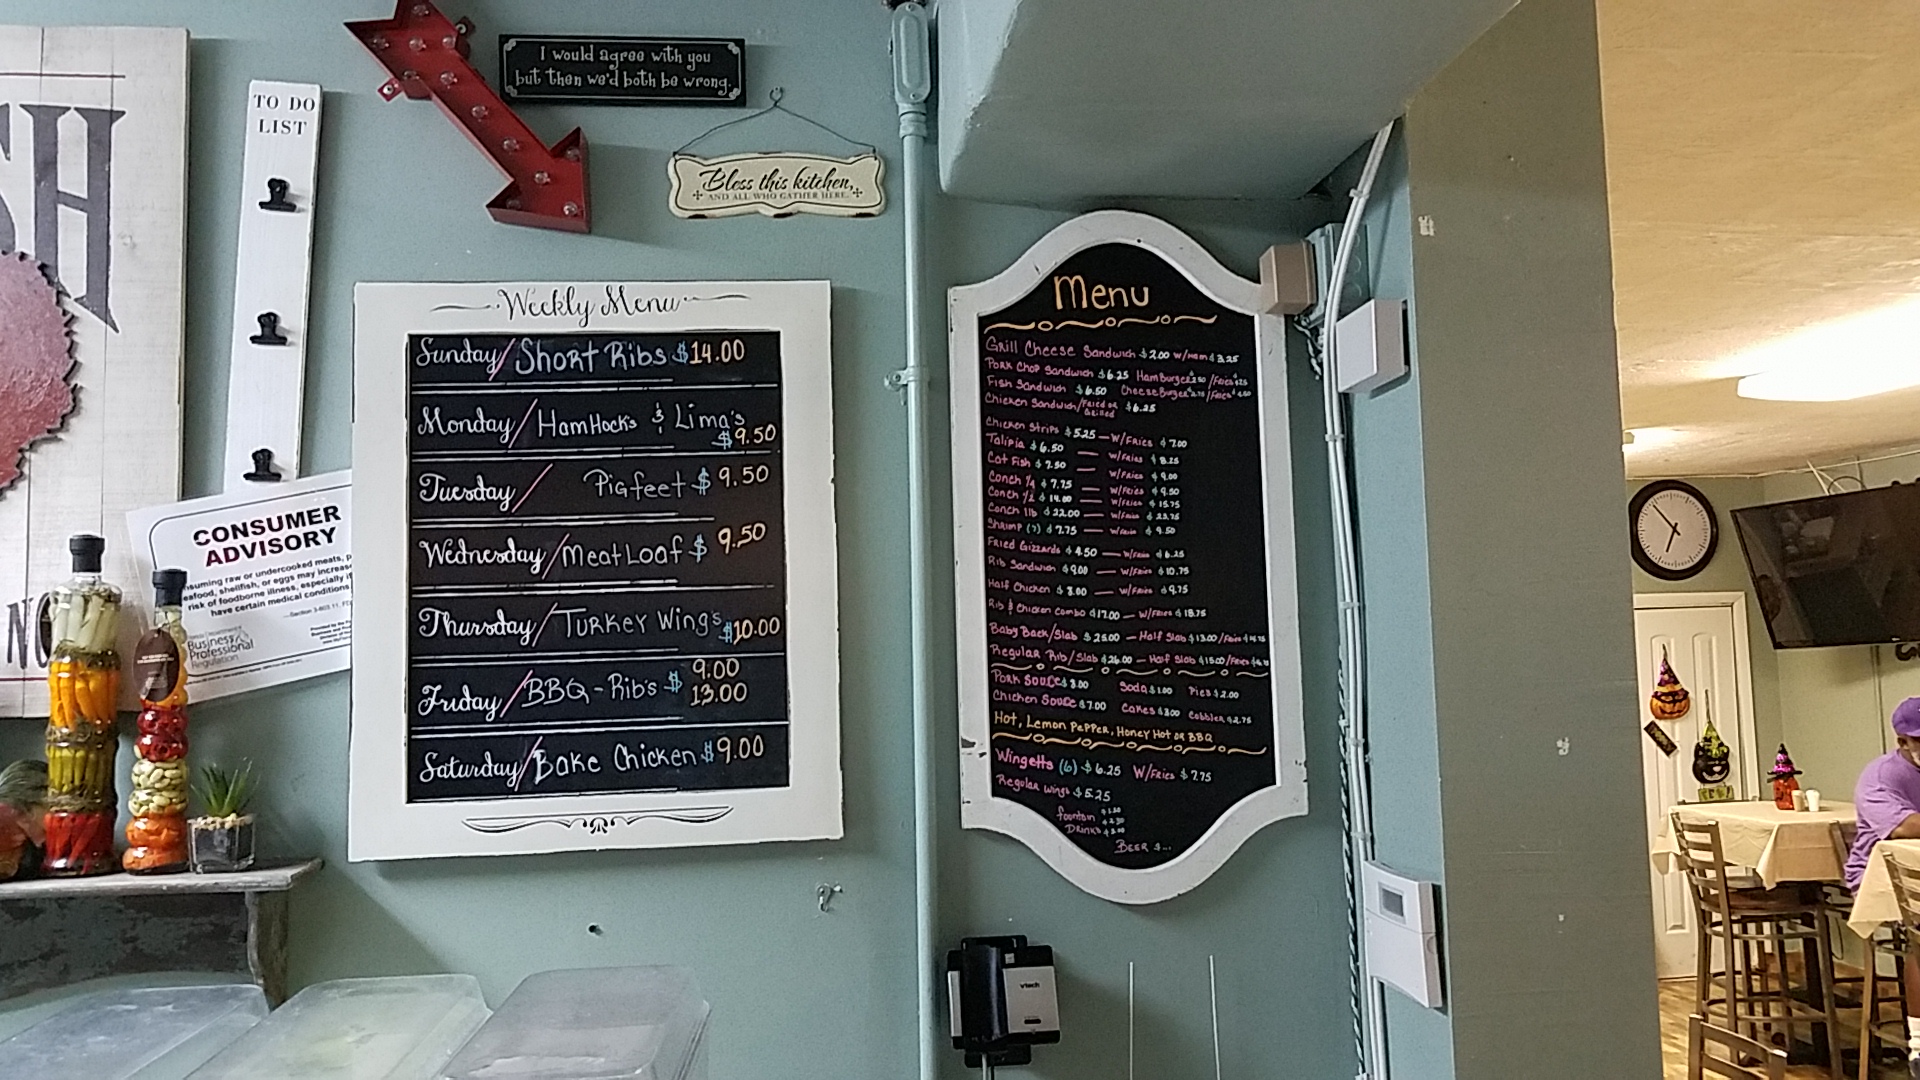 SH
NO
TO DO
LIST
I would agree with you
but then we'd both be wrong.
Bless this kitchen,
AND ALL WHO GATHER HERE.
CONSUMER
ADVISORY
nsuming raw or undercooked meats, p
eafood, shellfish, or eggs may increas
risk of foodborne illness, especially if
have certain medical conditions
Business
Professional
Regulation
Weekly Menu
Sunday/Short Ribs $14.00
Monday/HamHock's & Lima's
$9.50
Tuesday/ Pigfeet $9.50
Wednesday/MeatLoaf $9.50
Thursday/Turkey Wing's $10.00
Friday/BBQ-Rib's $ 9.00
13.00
Saturday/Bake Chicken $9.00
Menu
Grill Cheese Sandwich $2.00 w/Ham $3.25
Pork Chop Sandwich $6.25 HamBurger /Fries
Fish Sandwich $6.50 CheeseBurger /Fries
Chicken Sandwich/Fried or Grilled $6.25
Chicken Strips $5.25 — W/Fries $7.00
Talipia $6.50 — W/Fries $8.25
Cat Fish $7.50 — W/Fries $9.00
Conch 1/4 $7.75 — W/Fries $9.50
Conch 1/2 $14.00 — W/Fries $15.75
Conch 1lb $22.00 — W/Fries $23.75
Shrimp (7) $7.75 — W/Fries $9.50
Fried Gizzards $4.50 — W/Fries $6.25
Rib Sandwich $9.00 — W/Fries $10.75
Half Chicken $8.00 — W/Fries $9.75
Rib & Chicken Combo $17.00 — W/Fries $18.75
Baby Back/Slab $25.00 — Half Slab $13.00/Fries
Regular Rib/Slab $26.00 — Half Slab $15.00/Fries
Pork Souce $8.00 Soda $1.00 Pies $2.00
Chicken Souce $7.00 Cakes $3.00 Cobbler $2.75
Hot, Lemon Pepper, Honey Hot or BBQ
Wingetts (6) $6.25 W/Fries $7.75
Regular wings $5.25
fountain
Drinks
Beer $...
vtech